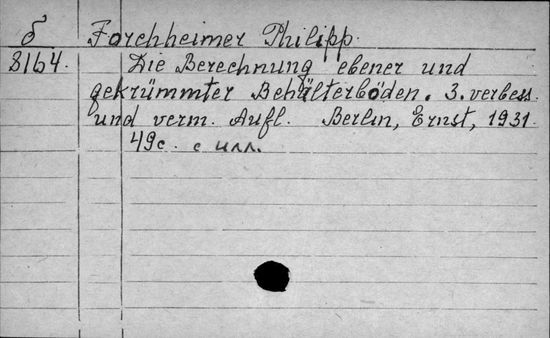 б Forchheimer Philipp.
8164. Die Berechnung ebener und
gekrümmter Behälterböden. 3. verbess.
und verm. Aufl. Berlin, Ernst, 1931.
49c. с илл.